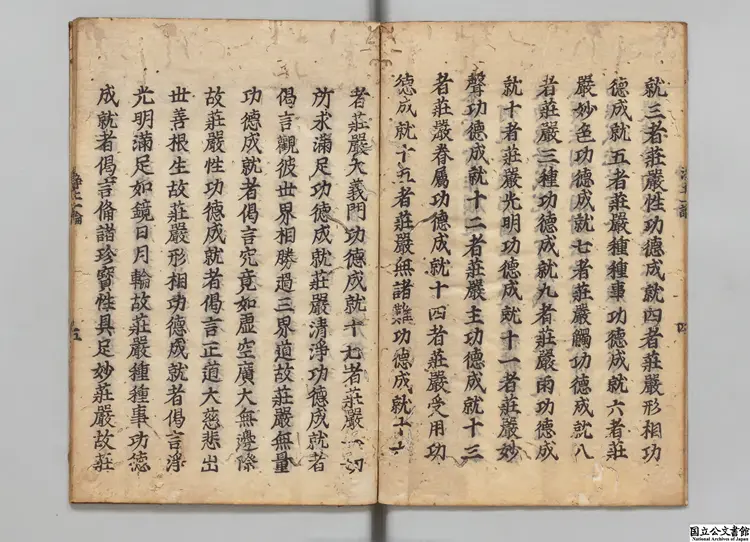 就三者莊嚴性功德成就四者莊嚴形相功
德成就五者莊嚴種種事功德成就六者莊
嚴妙色功德成就七者莊嚴觸功德成就八
者莊嚴三種功德成就九者莊嚴雨功德成
就十者莊嚴光明功德成就十一者莊嚴妙
聲功德成就十二者莊嚴主功德成就十三
者莊嚴眷屬功德成就十四者莊嚴受用功
德成就十五者莊嚴無諸難功德成就十六
者莊嚴大義門功德成就十七者莊嚴一切
所求滿足功德成就莊嚴清淨功德成就者
偈言觀彼世界相勝過三界道故莊嚴無量
功德成就者偈言究竟如虛空廣大無邊際
故莊嚴性功德成就者偈言正道大慈悲出
世善根生故莊嚴形相功德成就者偈言淨
光明滿足如鏡日月輪故莊嚴種種事功德
成就者偈言俻諸珍寶性具足妙莊嚴故莊
四
五
国立公文書館
National Archives of Japan